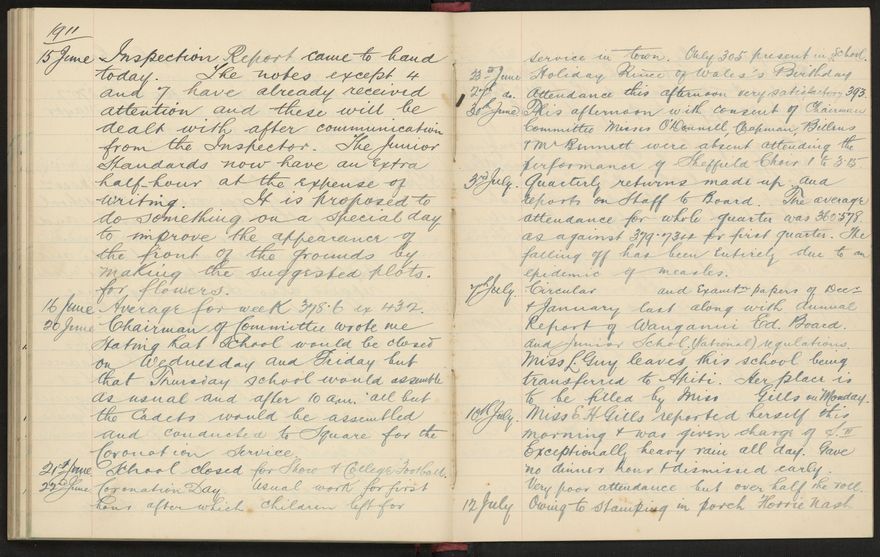 1911
15 June Inspection Report came to hand
today. The notes except 4
and 7 have already received
attention and these will be
dealt with after communication
from the Inspector. The Junior
Standards now have an extra
half-hour at the expense of
writing. It is proposed to
do something on a special day
to improve the appearance of
the front of the grounds by
making the suggested plots
for flowers.
16 June Average for week 378.6 ex 432.
20 June Chairman of Committee wrote me
stating that School would be closed
on Wednesday and Friday but
that Thursday school would assemble
as usual and after 10 a.m. all but
the Cadets would be assembled
and conducted to Square for the
Coronation Service.
21st June School closed for Show & College Football.
22nd June Coronation Day Usual work for first
hour after which children left for
service in town. Only 305 present in School.
23rd June Holiday Prince of Wales's Birthday
27th do. Attendance this afternoon very satisfactory 393.
30th June This afternoon with consent of Chairman
Committee Misses O'Connell, Chapman, Bellens
& Mr Bennett were absent attending the
performance of Sheffield Choir 1 to 3.15.
3rd July. Quarterly returns made up and
reports on Staff to Board. The average
attendance for whole quarter was 360.578
as against 379.734 for first quarter. The
falling off has been entirely due to an
epidemic of measles.
7th July. Circular and Examtn papers of Decr
& January last along with Annual
Report of Wanganui Ed. Board.
and Junior School (National) regulations.
Miss L Guy leaves this school being
transferred to Apiti. Her place is
to be filled by Miss Gills on Monday.
10th July. Miss E H Gills reported herself this
morning & was given charge of S. II
Exceptionally heavy rain all day. Gave
no dinner hour & dismissed early.
Very poor attendance but over half the roll.
12 July Owing to stamping in porch Horrie Nash